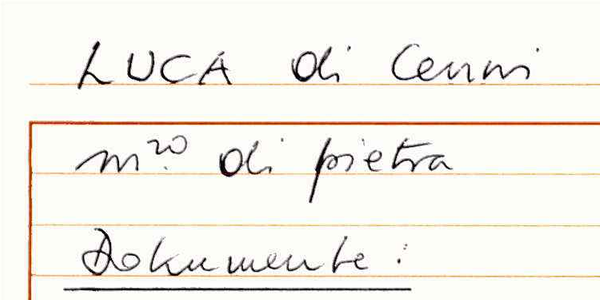 LUCA di Cenni
m.ro di pietra
Dokumente: